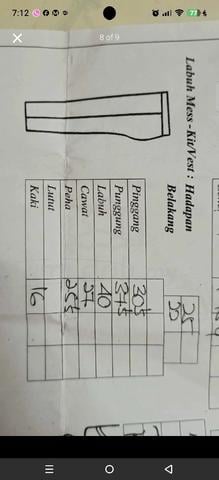 7:12
77
8 of 9
Labuh Mess - Kit/Vest : Hadapan
Belakang
Pinggang 30½
Punggung 37½
Labuh 40
Cawat 27
Peha
Lutut
Kaki 16